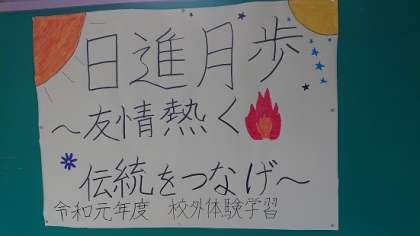 日進月歩
～友情熱く
伝統をつなげ～
令和元年度 校外体験学習